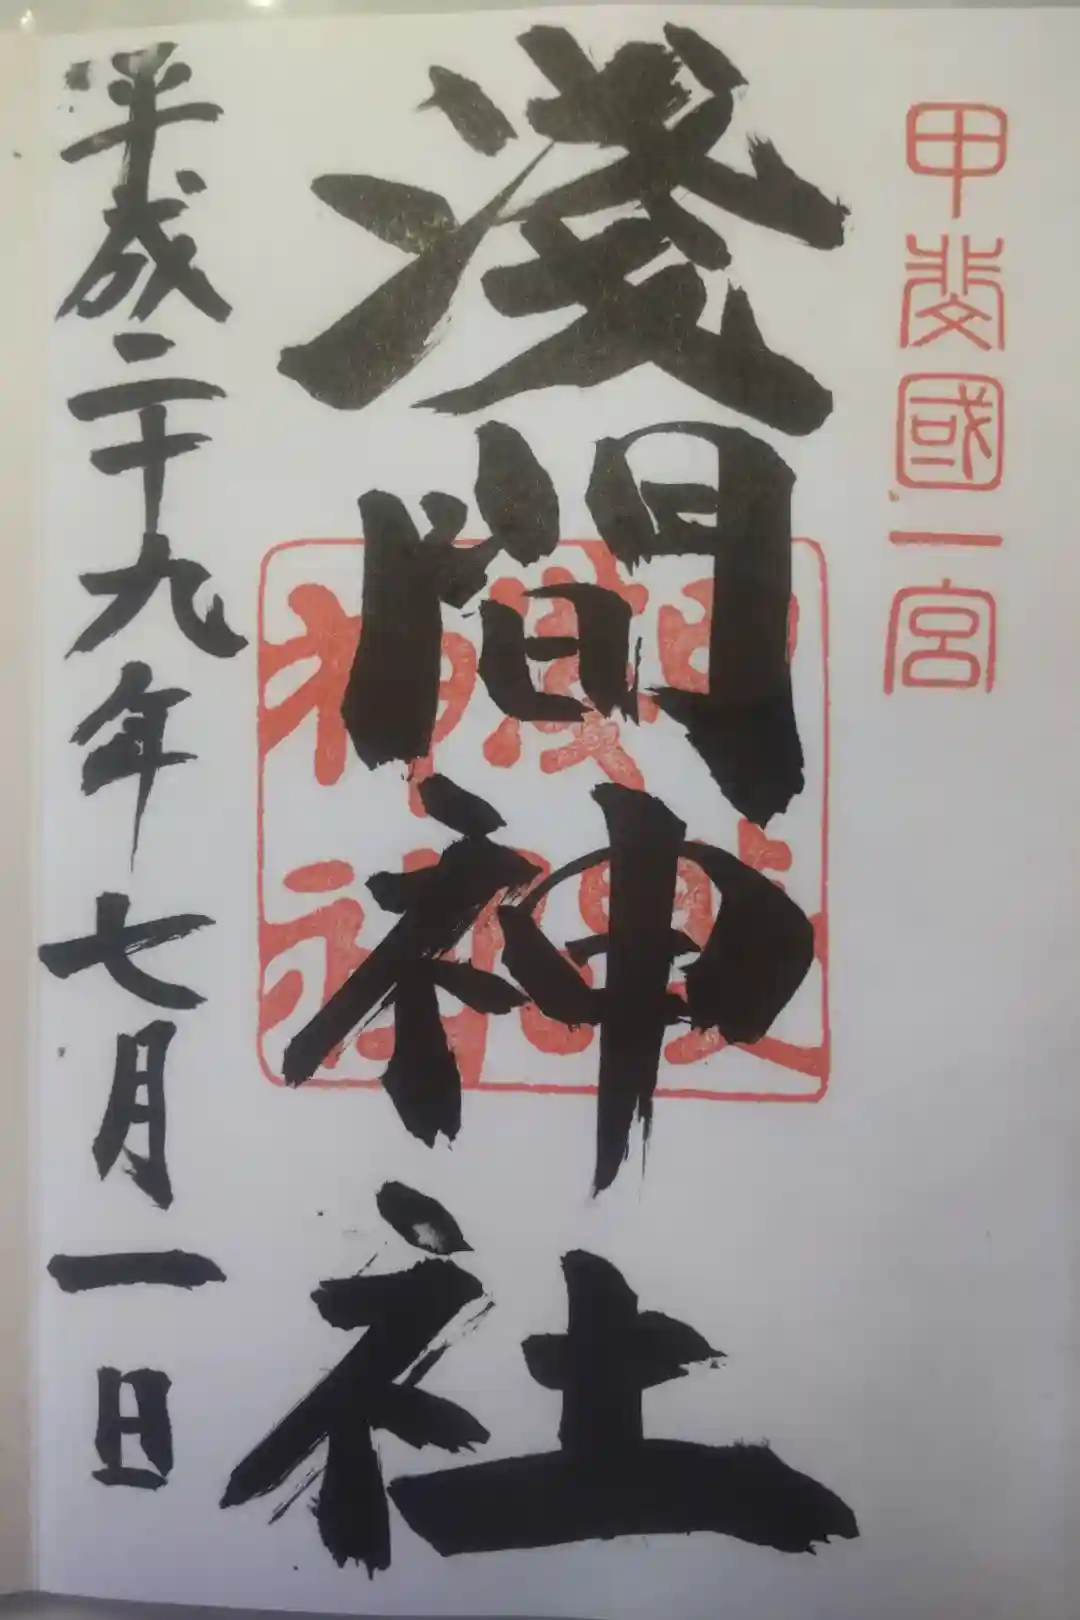 甲斐國一宮
淺間神社
淺間神社
平成二十九年七月一日